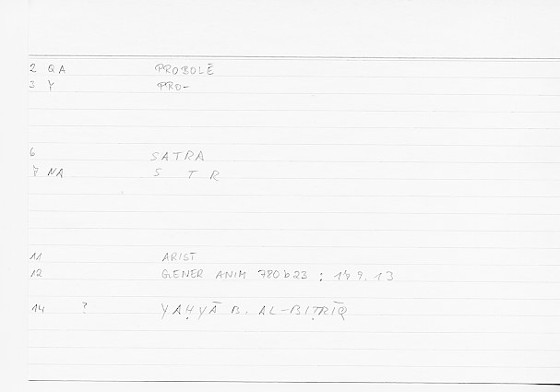 2 QA PROBOLĒ
3 Y PRO-
6 SATRA
7 NA S T R
11 ARIST
12 GENER ANIM 780b23 : 179.13
14 ? YAḤYĀ B. AL-BIṬRĪQ